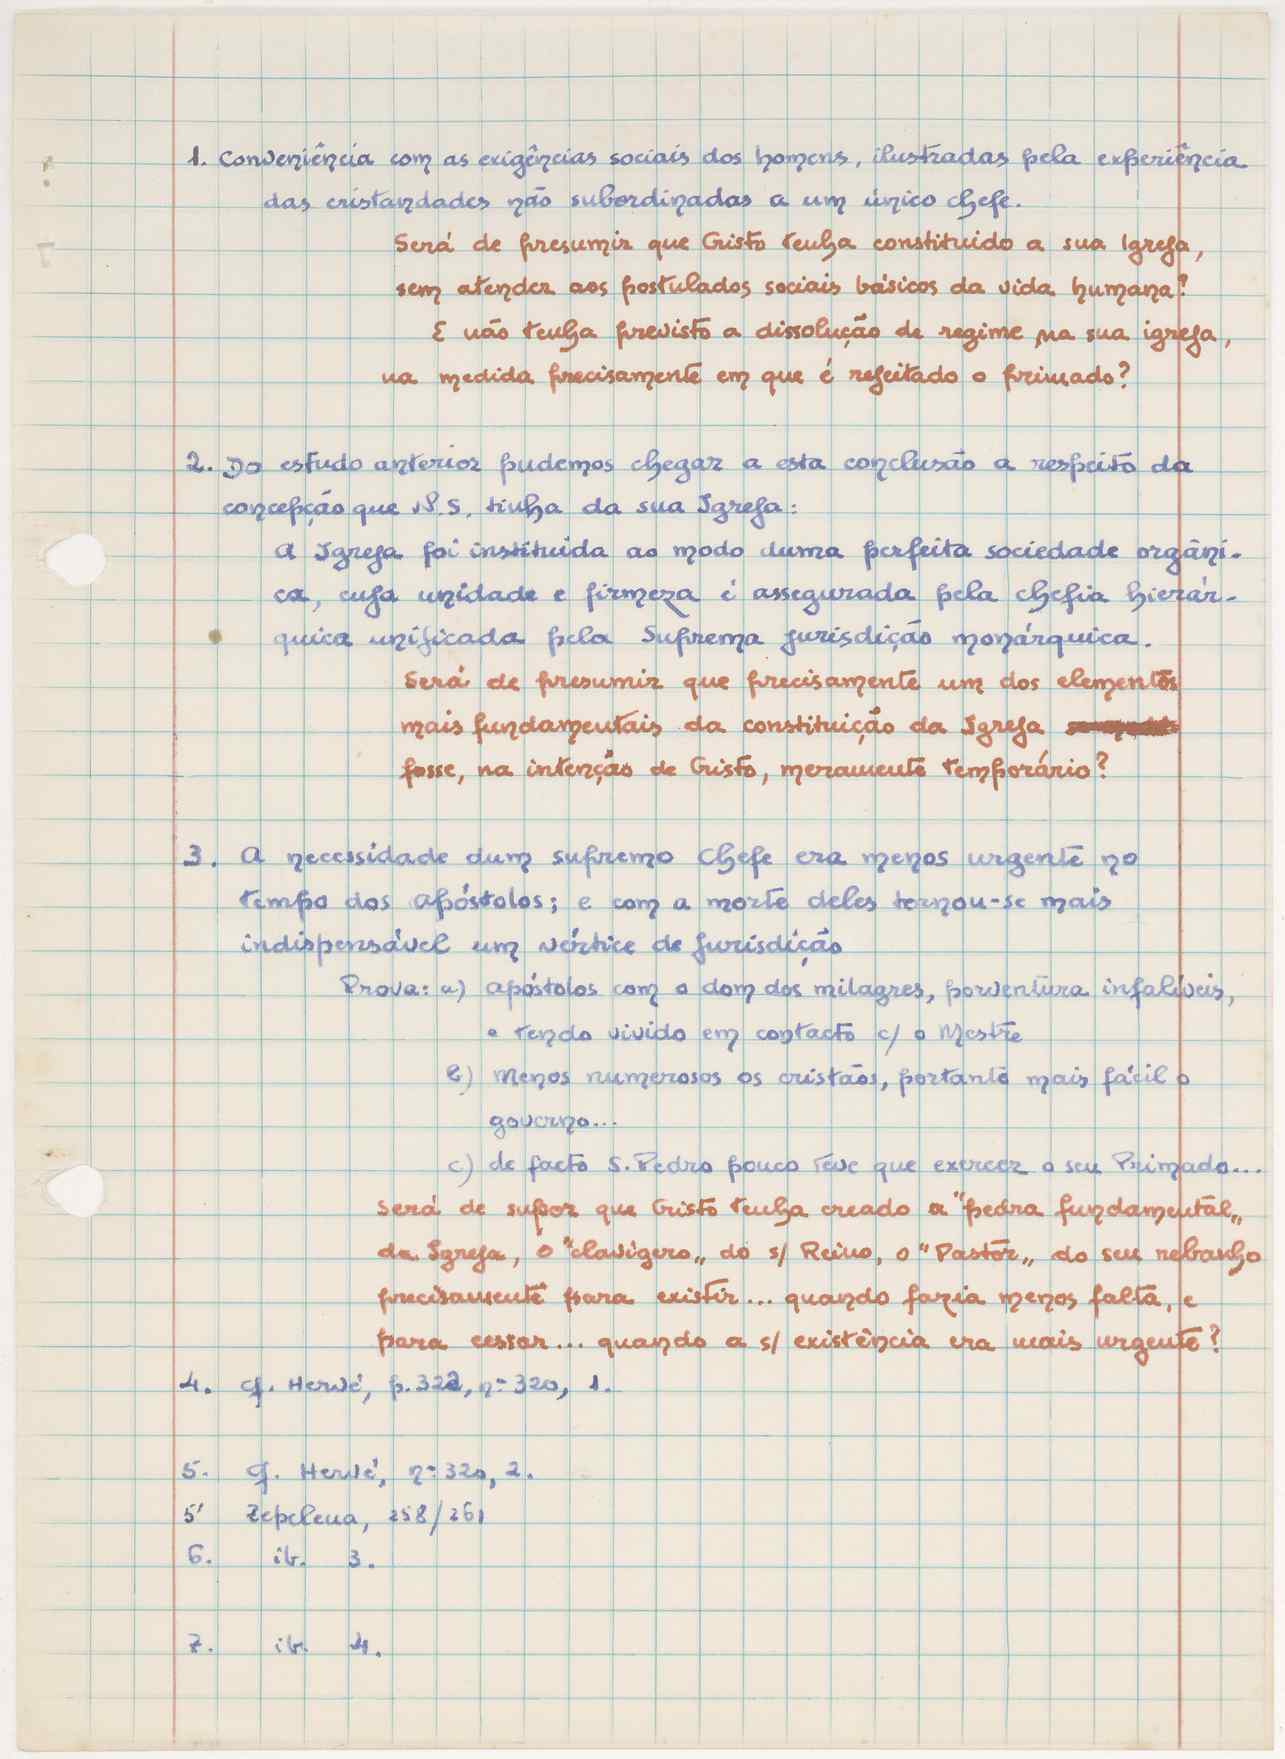 1. Conveniência com as exigências sociais dos homens, ilustradas pela experiência
das cristandades não subordinadas a um único chefe.
Será de presumir que Cristo tenha constituido a sua Igreja,
sem atender aos postulados sociais básicos da vida humana?
E não tenha previsto a dissolução de regime na sua igreja,
na medida precisamente em que é rejeitado o primado?
2. Do estudo anterior pudemos chegar a esta conclusão a respeito da
concepção que N.S. tinha da sua Igreja:
A Igreja foi instituida ao modo duma perfeita sociedade orgâni-
ca, cuja unidade e firmeza é assegurada pela chefia hierár-
quica unificada pela Suprema jurisdição monárquica.
Será de presumir que precisamente um dos elementos
mais fundamentais da constituição da Igreja
fosse, na intenção de Cristo, meramente temporário?
3. A necessidade dum supremo chefe era menos urgente no
tempo dos apóstolos; e com a morte deles tornou-se mais
indispensável um vértice de jurisdição
Prova: a) apóstolos com o dom dos milagres, porventura infalíveis,
e tendo vivido em contacto c/ o Mestre
b) menos numerosos os cristãos, portanto mais fácil o
governo...
c) de facto S. Pedro pouco teve que exercer o seu Primado...
Será de supor que Cristo tenha creado a "pedra fundamental"
da Igreja, o "clavígero" do s/ Reino, o "Pastor" do seu rebanho
precisamente para existir... quando fazia menos falta, e
para cessar... quando a s/ existência era mais urgente?
4. cf. Hervé, p. 322, nº 320, 1.
5. cf. Hervé, nº 320, 2.
5' Zapelena, 258/261
6. ib. 3.
7. ib. 4.